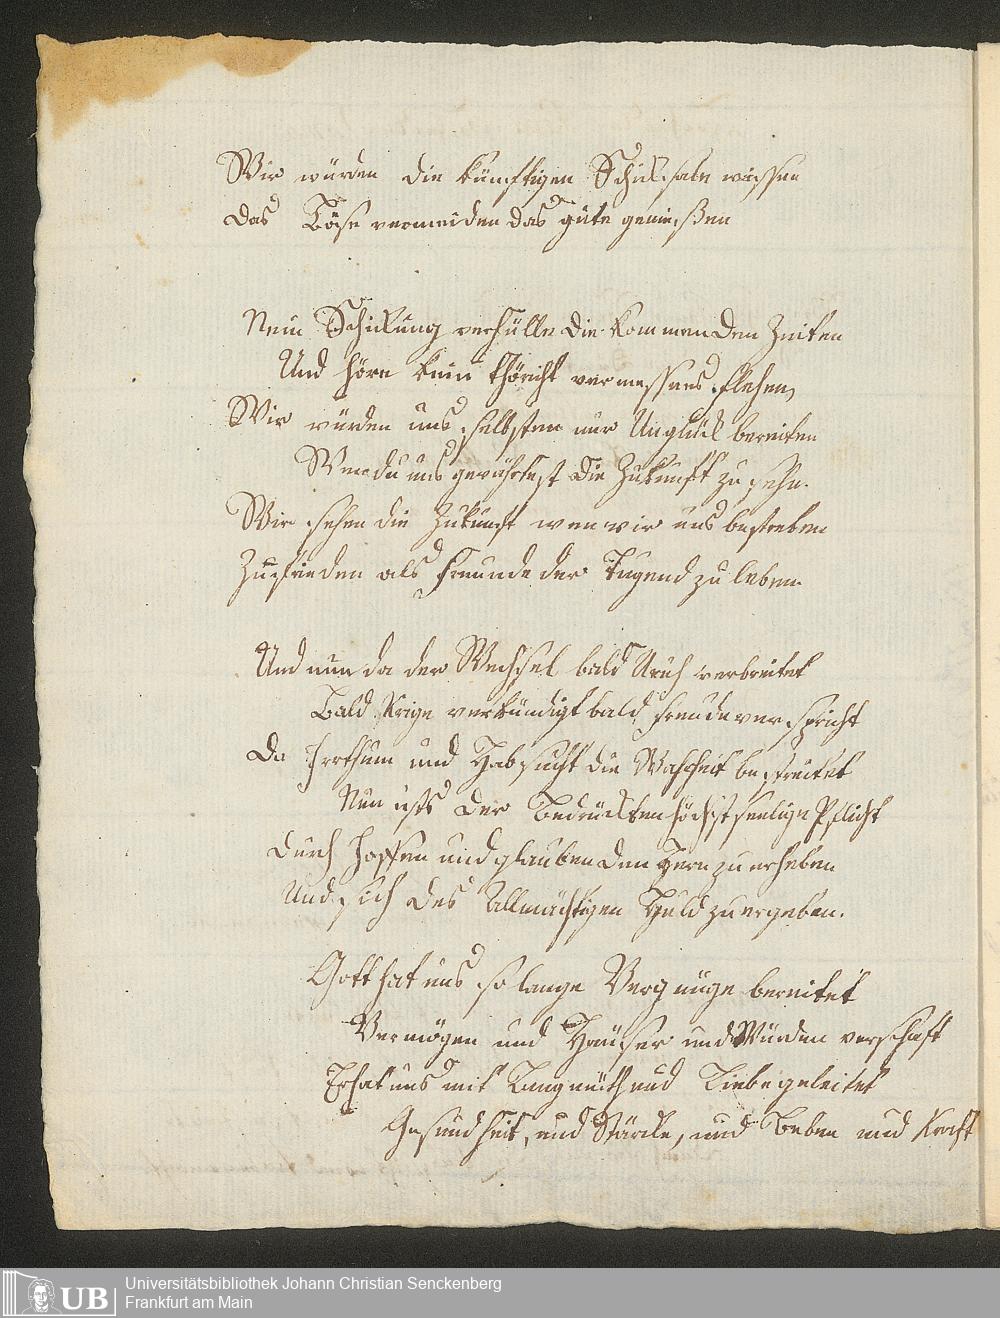 Wir würden die künftigen Schicksale wissen
das Böse vermeiden das gute genießen
Nein Schickung verhülle die kommenden Zeiten
Und höre kein thöricht vermessnes flehen,
Wir würden uns selbsten nur Unglück bereiten
Wen du uns gewährtest die Zukunft zu sehn.
Wir sehen die Zukunft wen wir uns bestreben
Zufrieden als Freunde der Tugend zu leben.
Und nun da der Wechsel bald Unruh verbreitet
Bald Krige verkündigt bald Freude verspricht
Da Irrthum und Habsucht die Wahrheit bestreitet
Nun ists der Bedrückten höchst seelige Pflicht
durch Hoffen und glauben den Hern zu erheben
Und sich des Allmächtigen Huld zu ergeben.
Gott hat uns so lange Vergnüge bereitet
Vermögen und Häuser und Würden verschaft
Er hat uns mit Langmuth und Liebe geleitet
Gesundheit, und Stärcke, und Leben und Kraft
Universitätsbibliothek Johann Christian Senckenberg
Frankfurt am Main
UB